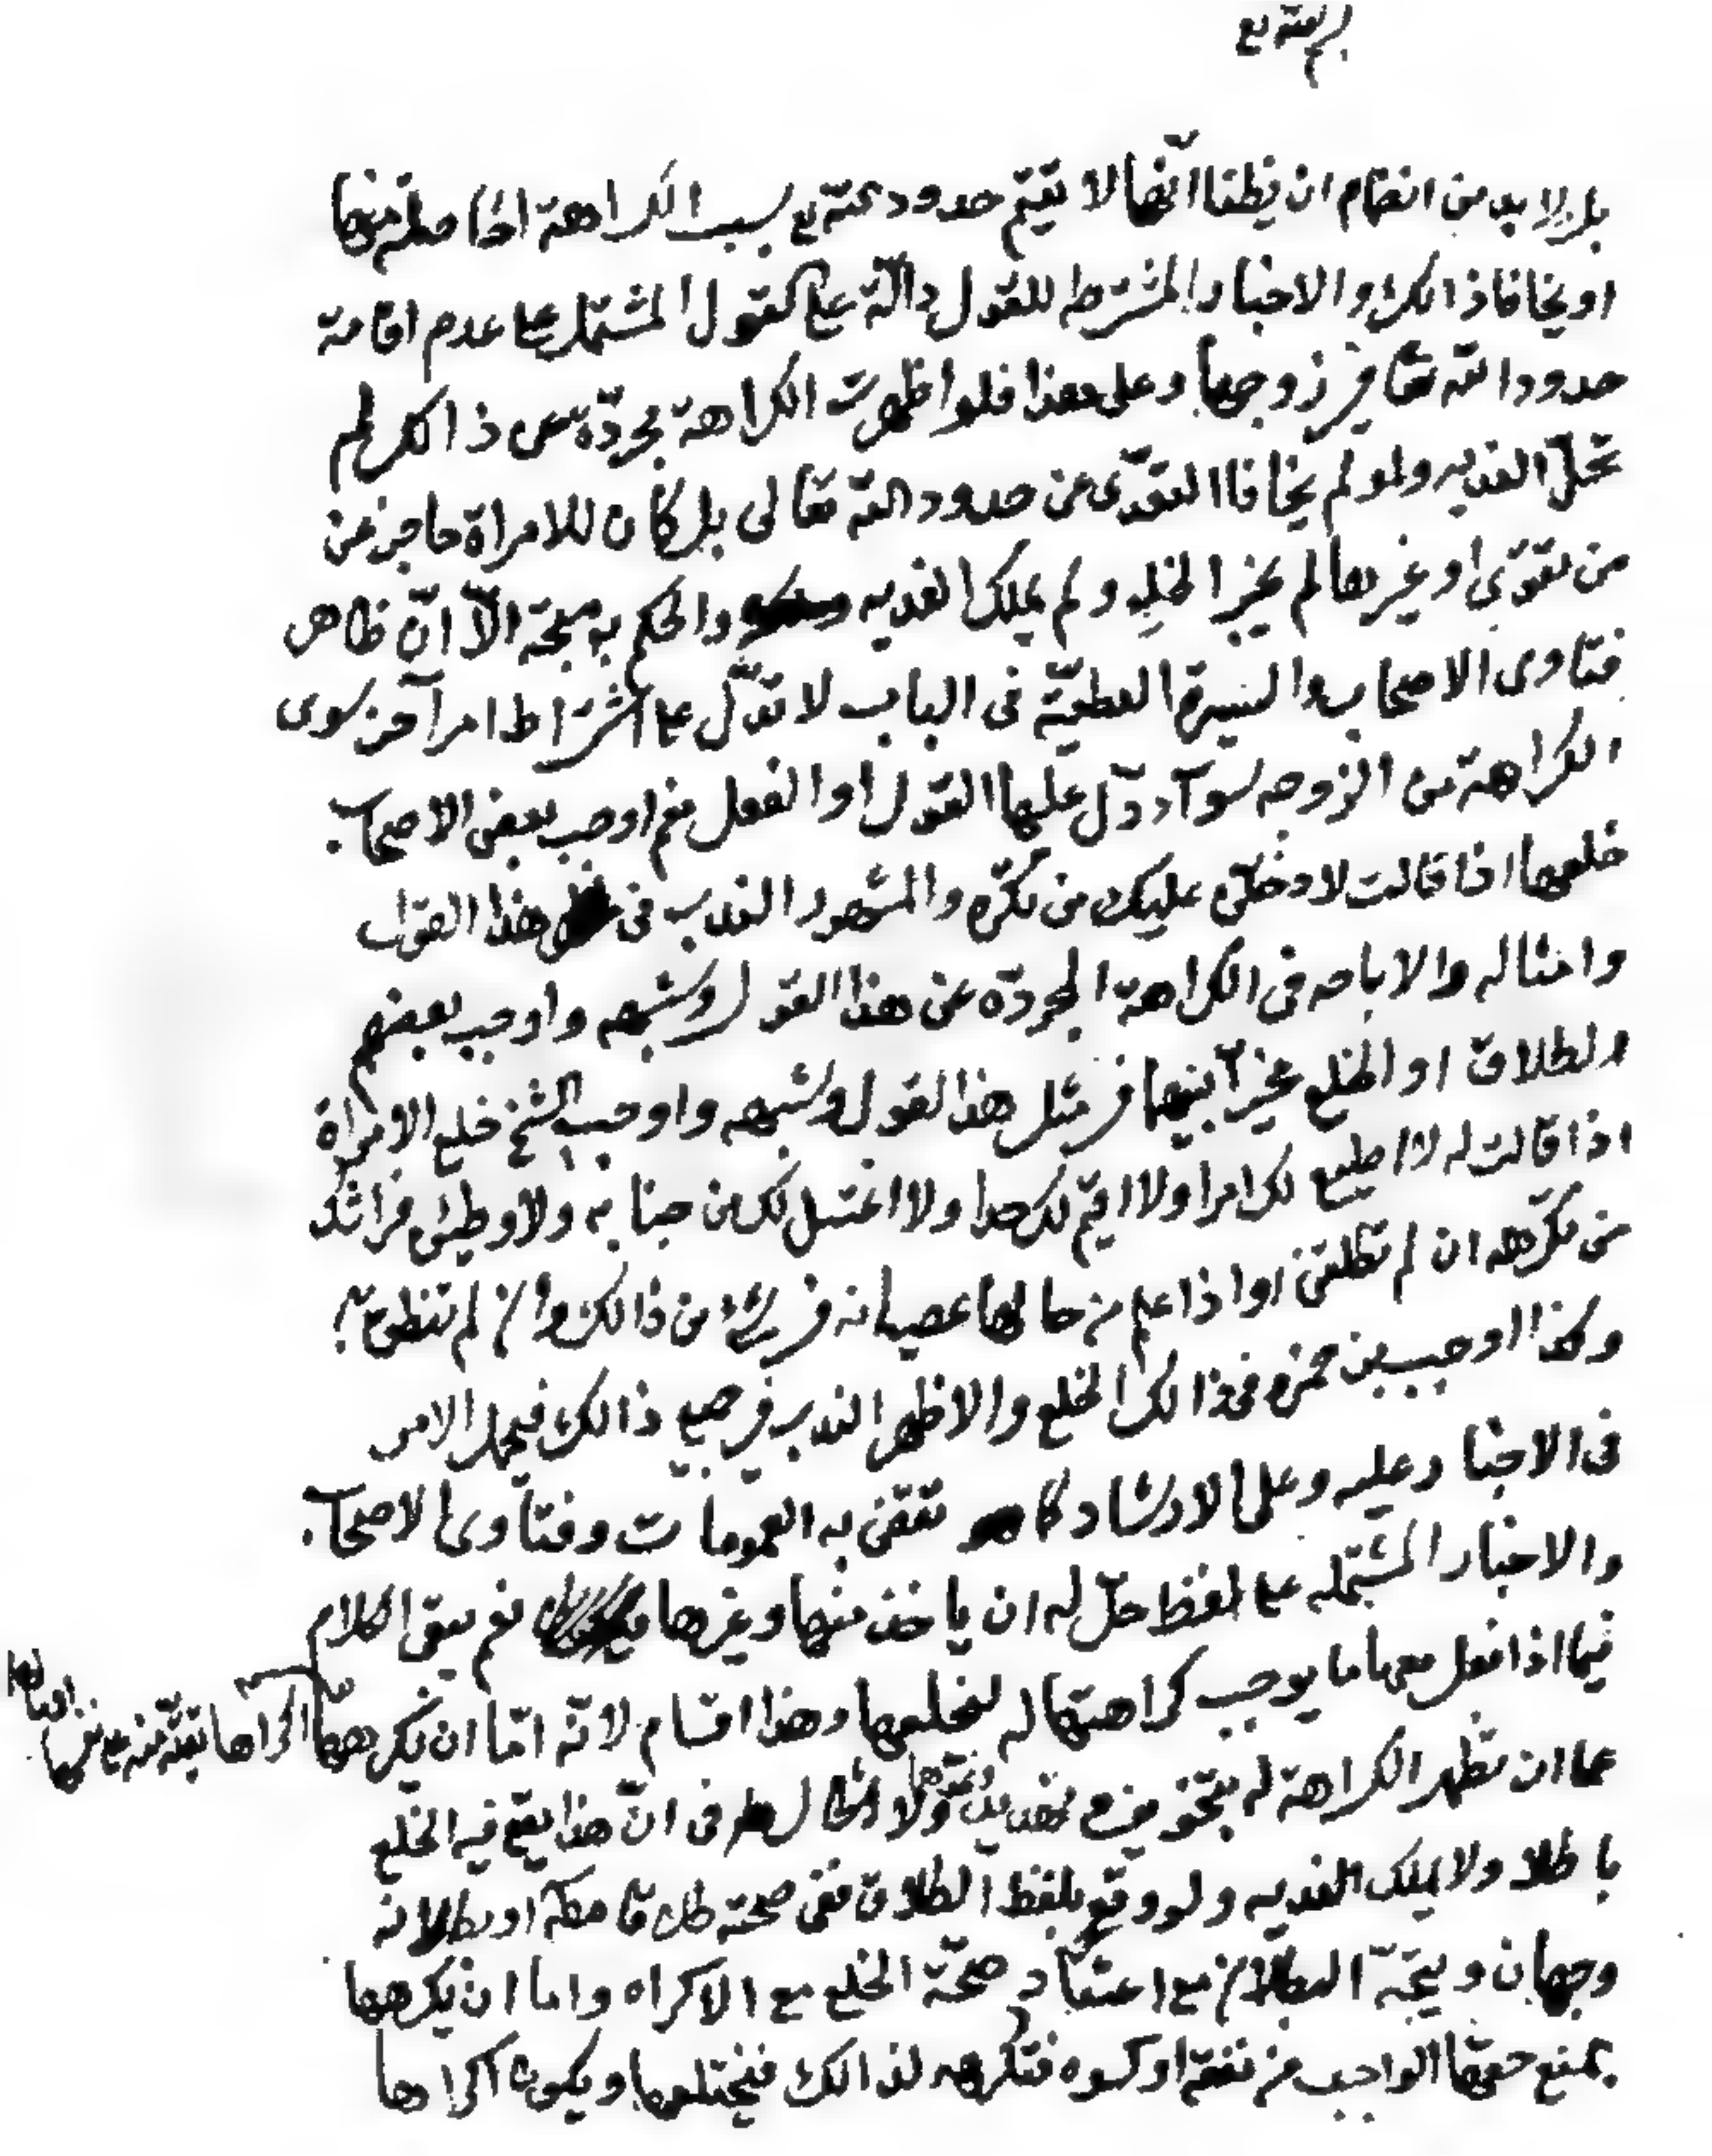 بسم الله تع
بل لا بد من انضمام ان يظنا انهما لا يقيم حدود الله تع بسبب الكراهة الحاصلة منهما
او يخافا ذالك والاخبار المشترطه للقول دالّة على كقول المشتمل على عدم اقامة
حدود الله تعا في زوجها وعلى هذا فلو اظهرت الكراهة مجردّة عن ذالك لم
تحلّ الفديه ولو لم يخافا التعدّى عن حدود الله تعالى بل كان للامراة حاجز عن
من تقوى او غيرها لم يجز الخلع ولم يملك الفديه والحكم به متجه الّا انّ ظاهر
فتاوى الاصحاب والسيرة القطعيّة فى الباب لا تدلّ على اشتراط امر آخر سوى
الكراهة من الزوجه سوآء دلّ عليها القول او الفعل نعم اوجب بعض الاصحاب
خلعها اذا قالت لادخلنّ عليك من تكره والمشهور الندب فى هذا القول
وامثاله والاباحه فى الكراهة المجردّه عن هذا القول وشبهه واوجب بعضهم
الطلاق او الخلع مخيرّاً بينهما فى مثل هذا القول وشبهه واوجب الشيخ خلع الامراة
اذا قالت له لا اطيع لك امرا ولا اقيم لك حدا ولا اغتسل لك من جنابه ولاوطئن فراشك
من تكرهه ان لم تطلقنى او اذا علم من حالها عصيانه فى شىء من ذالك وان لم تنطق به
وكذا اوجب بن حمزه فى ذالك الخلع والاظهر الندب فى جميع ذالك فيحمل الامر
فى الاخبار عليه وعلى الارشاد كما تقضى به العمومات وفتاوى الاصحاب
والاخبار المشتمله على لفظ حلّ له ان ياخذ منها وغيرها نعم بقى الكلام
فيما اذا فعل معها ما يوجب كراهتها له لخلعها وهذا اقسام لانّه امّا ان يكرهها اكراها تقيّة منه على نفسها
على ان تظهر الكراهة له بتخويف وتهديد ونحوهما ولا اشكال فى انّ هذا يقع فيه الخلع
باطلا ولا يملك الفديه ولو وقع بلفظ الطلاق ففى صحته طلاقا مكمّلا او بطلانه
وجهان ويتجّه البطلان مع اعتقاد صحّة الخلع مع الاكراه واما ان يكرهها
بمنع حقها الواجب من نفقة او كسوه فتكرهه لذالك فيختلعها ويكون اكراها